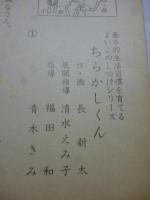 基本的生活習慣を育てる
よいこのしつけシリーズ
ちらかしくん
①
作・画 長新太
展開指導 清水えみ子
指導 福田和
青木きみ
なさん。